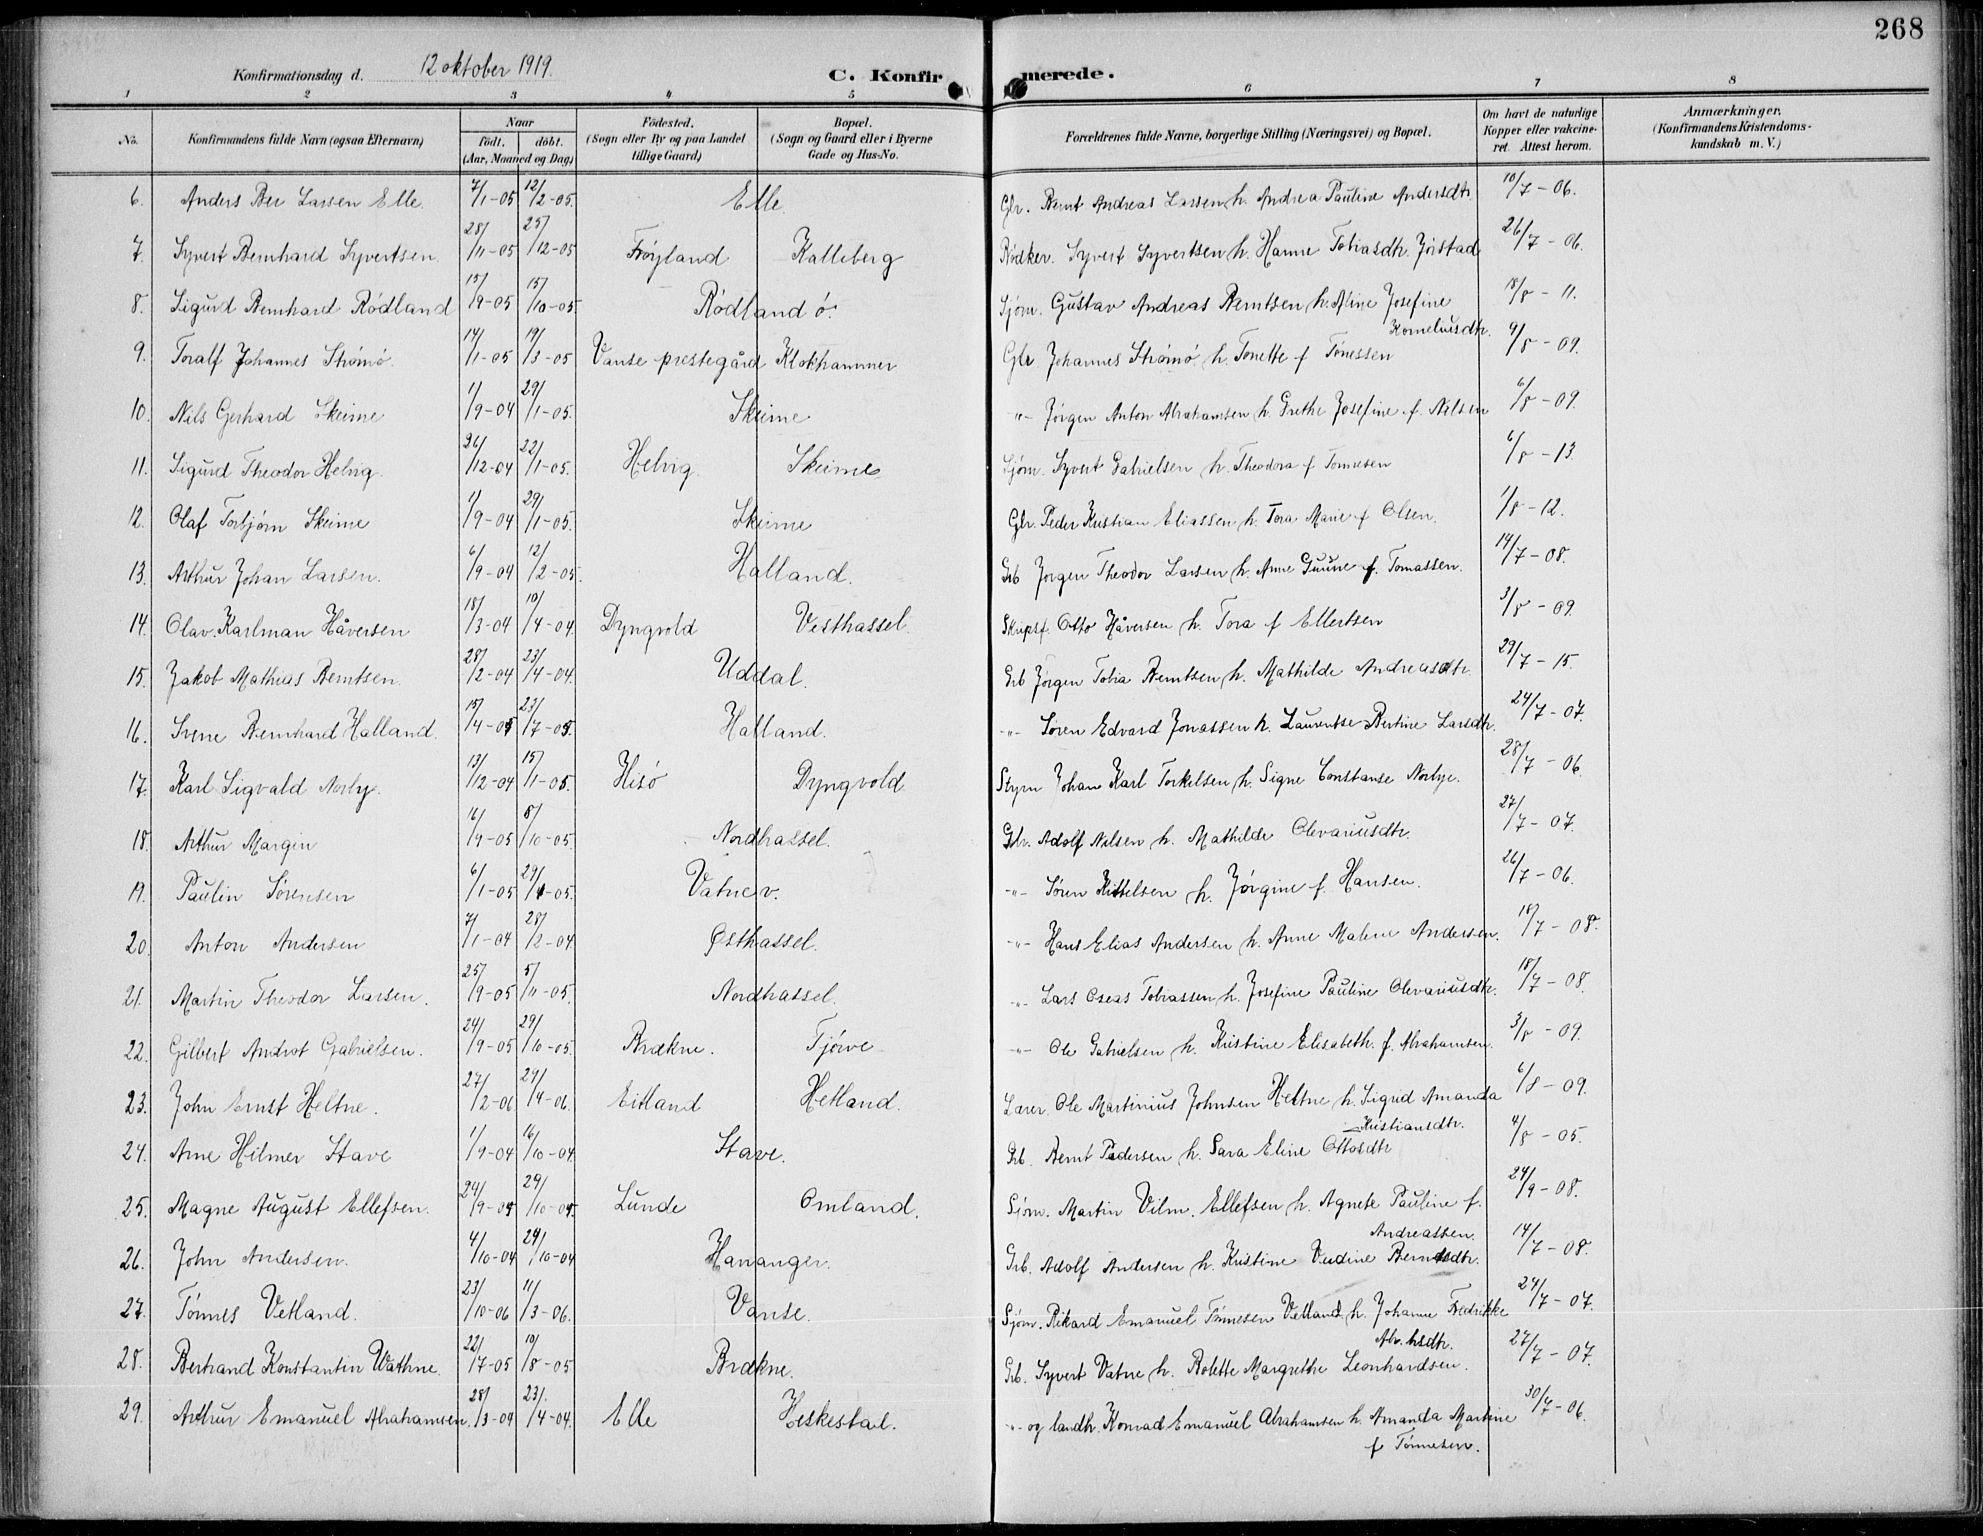 268
Konfirmationsdag d. 12 oktober 1919. C. Konfirmerede.
1 2 3 4 5 6 7 8
No. Konfirmandens fulde Navn (ogsaa Efternavn) Naar födt. döbt. (Aar, Maaned og Dag) Födested. (Sogn eller By og paa Landet tillige Gaard) Bopæl. (Sogn og Gaard eller i Byerne Gade og Hus-No. Forældrenes fulde Navne, borgerlige Stilling (Næringsvei) og Bopæl. Om havt de naturlige Kopper eller vakcineret. Attest herom. Anmærkninger. (Konfirmandens Kristendomskundskab m. V.)
6. Anders Ber Larsen Elle. 7/1-05 12/2-05. Elle. Gbr. Bernt Andreas Larsen h. Andrea Pauline Andersdtr. 10/7-06.
7. Syvert Bernhard Syvertsen. 28/11-05 25/12-05 Frøyland Kalleberg Rødker. Syvert Syvertsen h. Hanne Tobiasdtr. Jørstad 26/7-06.
8. Sigurd Bernhard Rødland 15/9-05 15/10-05. Rødland ø. Sjøm. Gustav Andreas Berntsen h. Aline Josefine 18/8-11.
Korneliusdtr.
9. Toralf Johannes Strømø. 14/1-05 19/3-05 Vanse prestegård Klokhammer Gbr Johannes Strømø h. Tonette f Tønessen 9/8-09.
10. Nils Gerhard Skeime 1/9-04 29/1-05. Skeime -"- Jørgen Anton Abrahamsen h. Grethe Josefine f. Nilsen 6/8-09.
11. Sigurd Theodor Helvig. 26/12-04 22/1-05. Helvig. Skeime Sjøm. Syvert Gabrielsen h. Theodora f Tønnesen 6/8-13.
12. Olaf Torbjørn Skeime 1/9-04 29/1-05. Skeime Gbr. Peder Kristian Eliassen h. Tora Marie f Olsen. 1/8-12.
13. Arthur Johan Larsen. 6/9-04 12/2-05. Halland. Grb Jørgen Theodor Larsen h. Anne f. Tomassen. 14/7-08.
14. Olav Karlman Håversen 18/3-04 10/4-04. Dyngvold Vesthassel. Skipsf. Otto Håversen h. Tora f Ellertsen 3/8-09
15. Jakob Mathias Berntsen. 28/2-04 23/4-04. Uddal. Grb Jørgen Tobia Berntsen h. Mathilde Andreasdtr. 29/7-15.
16. Svene Bernhard Halland. 15/4-05 23/7-05. Halland. -"- Søren Edvard Jonassen h. Laurentse Bertine Larsdtr. 24/7-07.
17. Karl Sigvald Norby. 13/12-04 15/1-05. Hisø Dyngvold Styrm Johan Karl Torkelsen h. Signe Constanse Norbye. 28/7-06.
18. Arthur Margin 16/9-05 8/10-05. Nordhassel. Gbr. Adolf Nilsen h. Mathilde Olevariusdtr. 27/7-07.
19. Paulin Sørensen 6/1-05 29/1-05. Vatne v. -"- Søren Kittelsen h. Jørgine f. Hansen. 26/7-06.
20. Anton Andersen 7/1-04 28/2-04. Østhassel. -"- Hans Elias Andersen h. Anne Malene Andersen. 18/7-08.
21. Martin Theodor Larsen. 25/9-05 5/11-05. Nordhassel. -"- Lars Oseas Tobiassen h. Josefine Pauline Olevariusdtr. 18/7-08.
22. Gilbert Androt Gabrielsen. 24/9-05 29/10-05. Brækne. Tjørve -"- Ole Gabrielsen h. Kristine Elisabeth. f. Abrahamsen. 3/8-09.
23. John Ernst Heltne. 27/2-06 29/4-06. Eitland Hetland. Lærer. Ole Martinius Johnsen Heltne h. Sigrid Amanda 6/8-09.
Kristiansdtr.
24. Arne Hilmer Stave 1/9-04 16/10-04. Stave. Grb. Bernt Pedersen h. Sara Eline Ottosdtr 4/8-05.
25. Magne August Ellefsen. 24/9-04 29/10-04. Lunde Omland. Sjøm. Martin Vilm. Ellefsen h. Agnete Pauline f. 24/9-08.
Andreassen.
26. John Andersen. 4/10-04 29/10-04 Hananger. Grb. Adolf Andersen h. Kristine Berntsdtr. 14/7-08.
27. Tønnes Vetland. 23/10-06 11/3-06. Vanse. Sjøm. Rikard Emanuel Tønnesen Vetland h. Johanne Fredrikke 24/7-07.
Abr.hsdtr.
28. Bertrand Konstantin Wathne. 22/7-05 10/8-05 Brækne. Grb. Syvert Vatne h. Bolette Margrethe Leonhardsen. 27/7-07.
29. Arthur Emanuel Abrahamsen. 28/3-04 23/4-04. Elle Heskestal. -"- og landh. Konrad Emanuel Abrahamsen h. Amanda Martine 30/7-06.
f Tønnesen.